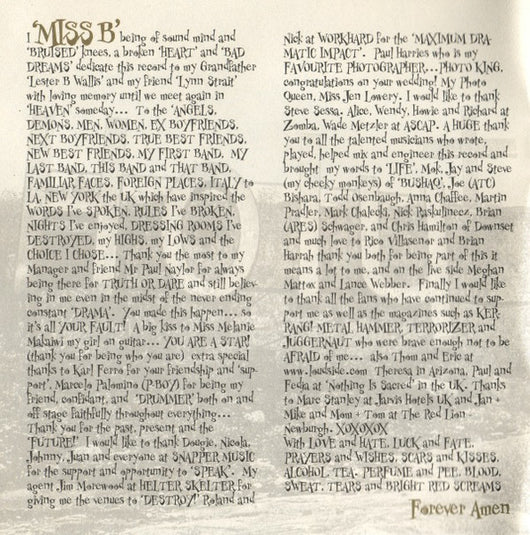 I 'MISS B' being of sound mind and
'BRUISED' knees, a broken 'HEART' and 'BAD
DREAMS' dedicate this record to my Grandfather
'Lester B Wallis' and my friend 'Lynn Strait'
with loving memory until we meet again in
'HEAVEN' someday... To the 'ANGELS,
DEMONS, MEN, WOMEN, EX BOYFRIENDS,
NEXT BOYFRIENDS, TRUE BEST FRIENDS,
NEW BEST FRIENDS, MY FIRST BAND, MY
LAST BAND, THIS BAND and THAT BAND,
FAMILIAR FACES, FOREIGN PLACES, ITALY to
LA, NEW YORK the UK which have inspired the
WORDS I've SPOKEN, RULES I've BROKEN,
NIGHTS I've enjoyed, DRESSING ROOMS I've
DESTROYED, my HIGHS, my LOWS and the
CHOICE I CHOSE... Thank you the most to my
Manager and friend Mr Paul Naylor for always
being there for TRUTH OR DARE and still believ-
ing in me even in the midst of the never ending
constant 'DRAMA'. You made this happen... so
it's all YOUR FAULT! A big kiss to Miss Melanie
Makaiwi my girl on guitar... YOU ARE A STAR!
(thank you for being who you are) extra special
thanks to Karl Ferro for your friendship and 'sup-
port', Marcelo Palomino (P-BOY) for being my
friend, confidant, and 'DRUMMER' both on and
off stage faithfully throughout everything...
Thank you for the past, present and the
'FUTURE!' I would like to thank Dougie, Nicola,
Johnny, Juan and everyone at SNAPPER MUSIC
for the support and opportunity to 'SPEAK'. My
agent Jim Morewood at HELTER SKELTER for
giving me the venues to 'DESTROY!' Roland and
Nick at WORKHARD for the 'MAXIMUM DRA-
MATIC IMPACT'. Paul Harries who is my
FAVOURITE PHOTOGRAPHER...PHOTO KING,
congratulations on your wedding! My Photo
Queen, Miss Jen Lowery. I would like to thank
Steve Sessa, Alice, Wendy, Howie and Richard at
Zomba, Wade Metzler at ASCAP. A HUGE thank
you to all the talented musicians who wrote,
played, helped mix and engineer this record and
brought my words to 'LIFE', Mok, Jay and Steve
(my cheeky monkeys) of 'BUSHAQ', Joe (ATC)
Bishara, Todd Osenbaugh, Anna Chaffee, Martin
Pradler, Mark Chalecki, Nick Raskulinecz, Brian
(ARES) Schwager, and Chris Hamilton of Downset
and much love to Rico Villasenor and Brian
Harrah thank you both for being part of this it
means a lot to me, and on the live side Meghan
Mattox and Lance Webber. Finally I would like
to thank all the fans who have continued to sup-
port me as well as the magazines such as KER-
RANG! METAL HAMMER, TERRORIZER and
JUGGERNAUT who were brave enough not to be
AFRAID of me... also Thom and Eric at
www.loudside.com Theresa in Arizona, Paul and
Fedja at 'Nothing Is Sacred' in the UK. Thanks
to Marc Stanley at Jarvis Hotels UK and Jan +
Mike and Mom + Tom at The Red Lion -
Newburgh. XOXOXOX
With LOVE and HATE, LUCK and FATE,
PRAYERS and WISHES, SCARS and KISSES,
ALCOHOL, TEA, PERFUME and PEE, BLOOD,
SWEAT, TEARS and BRIGHT RED SCREAMS
Forever Amen